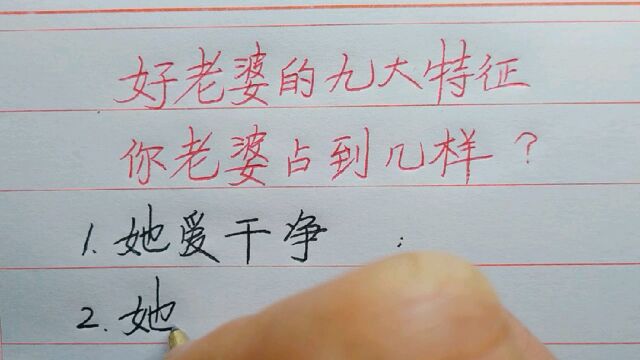 好老婆的九大特征
你老婆占到几样？
1.她爱干净
2.她